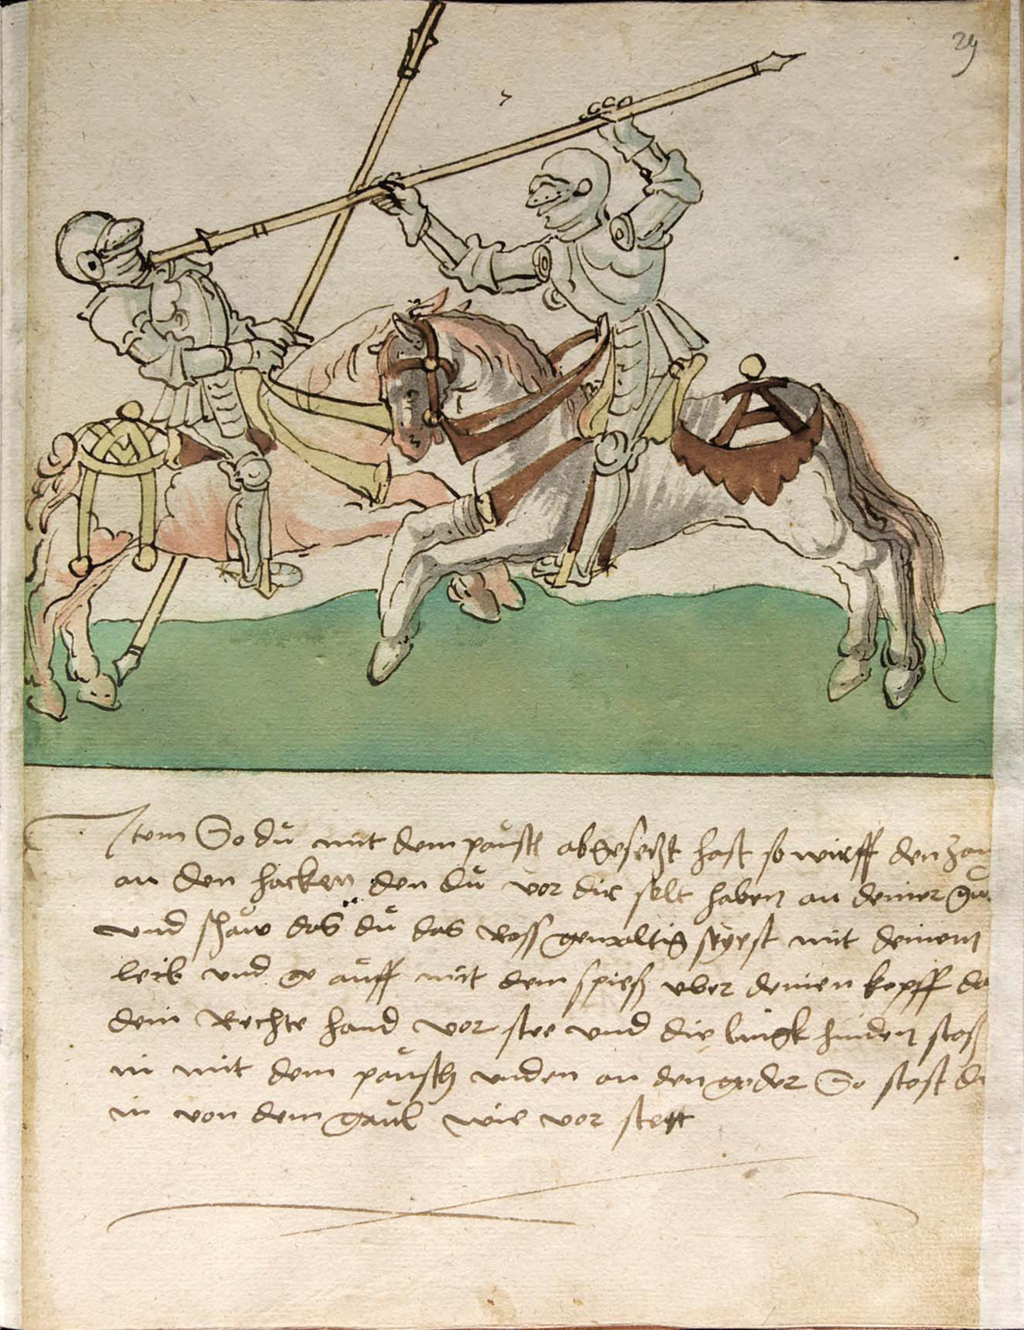 29
Item So dů mit dem paůsch abgesetzt hast so wirff den zau
an den hacken den dů vor dir solt haben an deiner
vnd schaw das dů das Ross gewaltig seyest mit deinem
leib vnd ge aůff mit dem spieß vber deinen kopff da
dein Rechte hand vor stee vnd die lingk hinden stoß
in mit dem paůsch vnden an den goder So stost dů
in von dem gaůl wie vor stett